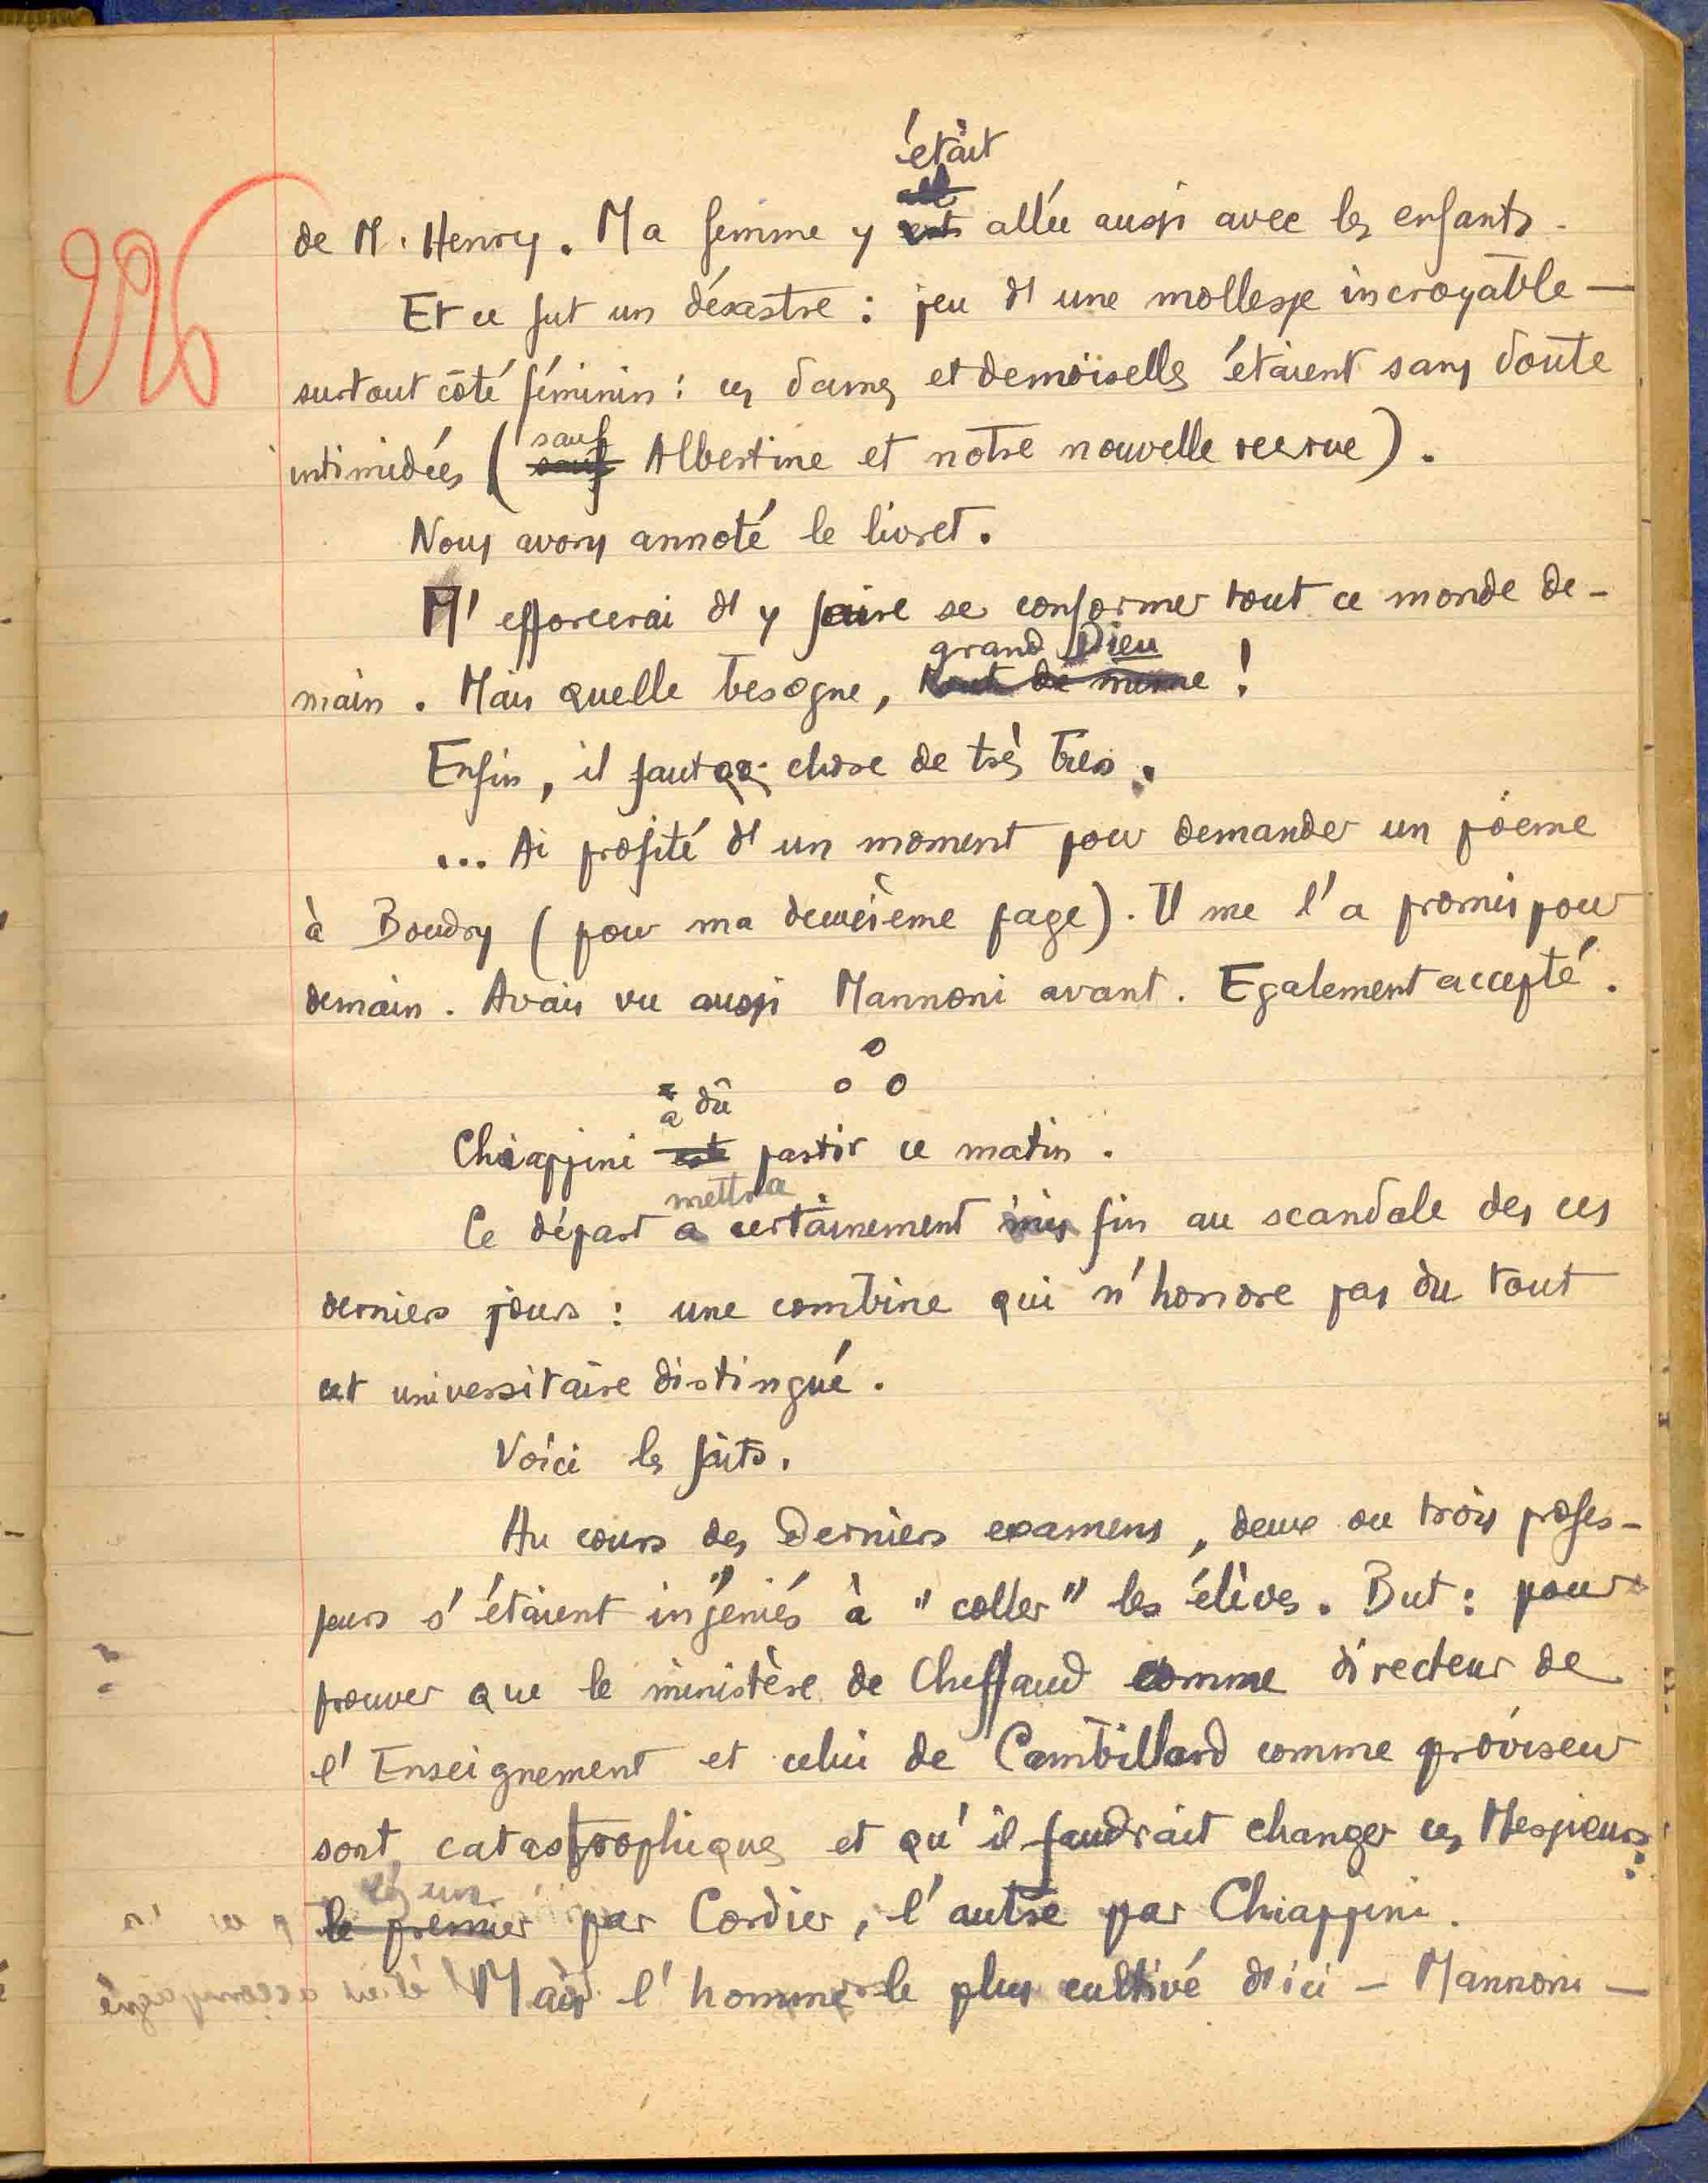 226
était
de M. Henry. Ma femme y est allée aussi avec les enfants.
Et ce fut un désastre : jeu d'une mollesse incroyable —
surtout côté féminin : ces dames et demoiselles étaient sans doute
sauf
intimidées (sauf Albertine et notre nouvelle recrue).
Nous avons annoté le livret.
M'efforcerai d'y faire se conformer tout ce monde de-
grand Dieu
main. Mais quelle besogne, tout de même !
Enfin, il faut qq. chose de très bien.
... Ai profité d'un moment pour demander un poème
à Boudry (pour ma deuxième page). Il me l'a promis pour
demain. Avais vu aussi Mannoni avant. Egalement accepté.
a dû
Chiappini est partir ce matin.
mettra
Ce départ a certainement mis fin au scandale des ces
derniers jours : une combine qui n'honore pas du tout
cet universitaire distingué.
Voici les faits.
Au cours des derniers examens, deux ou trois profes-
seurs s'étaient ingéniés à "coller" les élèves. But : pour
prouver que le ministère de Cheffaud comme directeur de
l'Enseignement et celui de Cambillard comme proviseur
sont catastrophiques et qu'il faudrait changer ces Messieurs :
l'un
le premier par Cordier, l'autre par Chiappini.
Mais l'homme le plus cultivé d'ici — Mannoni —